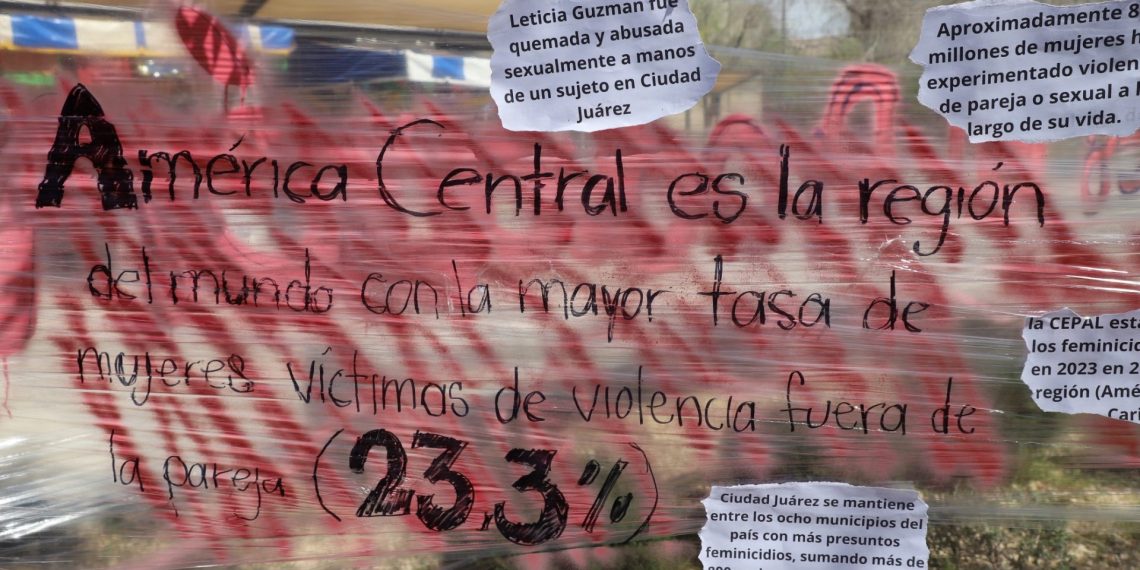 Leticia Guzman fue
quemada y abusada
sexualmente a manos
de un sujeto en Ciudad
Juárez
Aproximadamente 8
millones de mujeres h
experimentado violen
de pareja o sexual a l
largo de su vida.
América Central es la región
del mundo con la mayor tasa de
mujeres víctimas de violencia fuera de
la pareja (23.3%)
la CEPAL est
los feminicid
en 2023 en 2
región (Amé
Cari
Ciudad Juárez se mantiene
entre los ocho municipios del
país con más presuntos
feminicidios, sumando más de